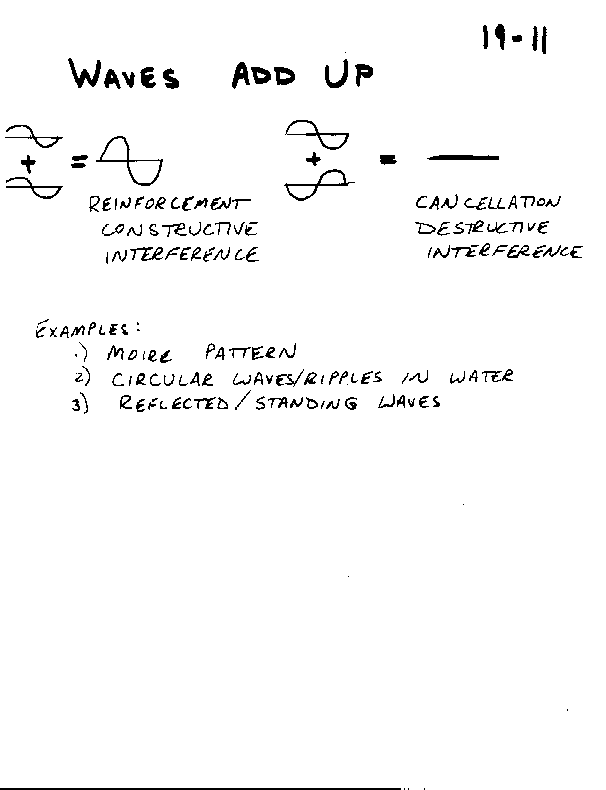 19-11
WAVES ADD UP
+ =
+ =
REINFORCEMENT
CONSTRUCTIVE
INTERFERENCE
CANCELLATION
DESTRUCTIVE
INTERFERENCE
EXAMPLES:
1) MOIRE PATTERN
2) CIRCULAR WAVES/RIPPLES IN WATER
3) REFLECTED/STANDING WAVES